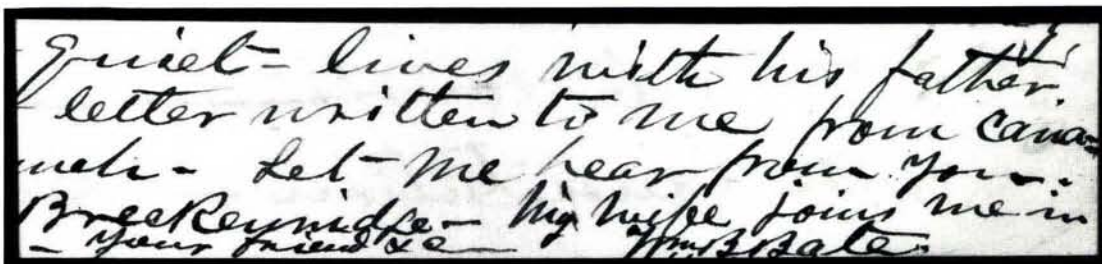 quiet - lives with his father.
- letter written to me from Cana=
much - Let me hear from you -
Breckenridge - My wife joins me in
- your friend &c - Wm B Bate